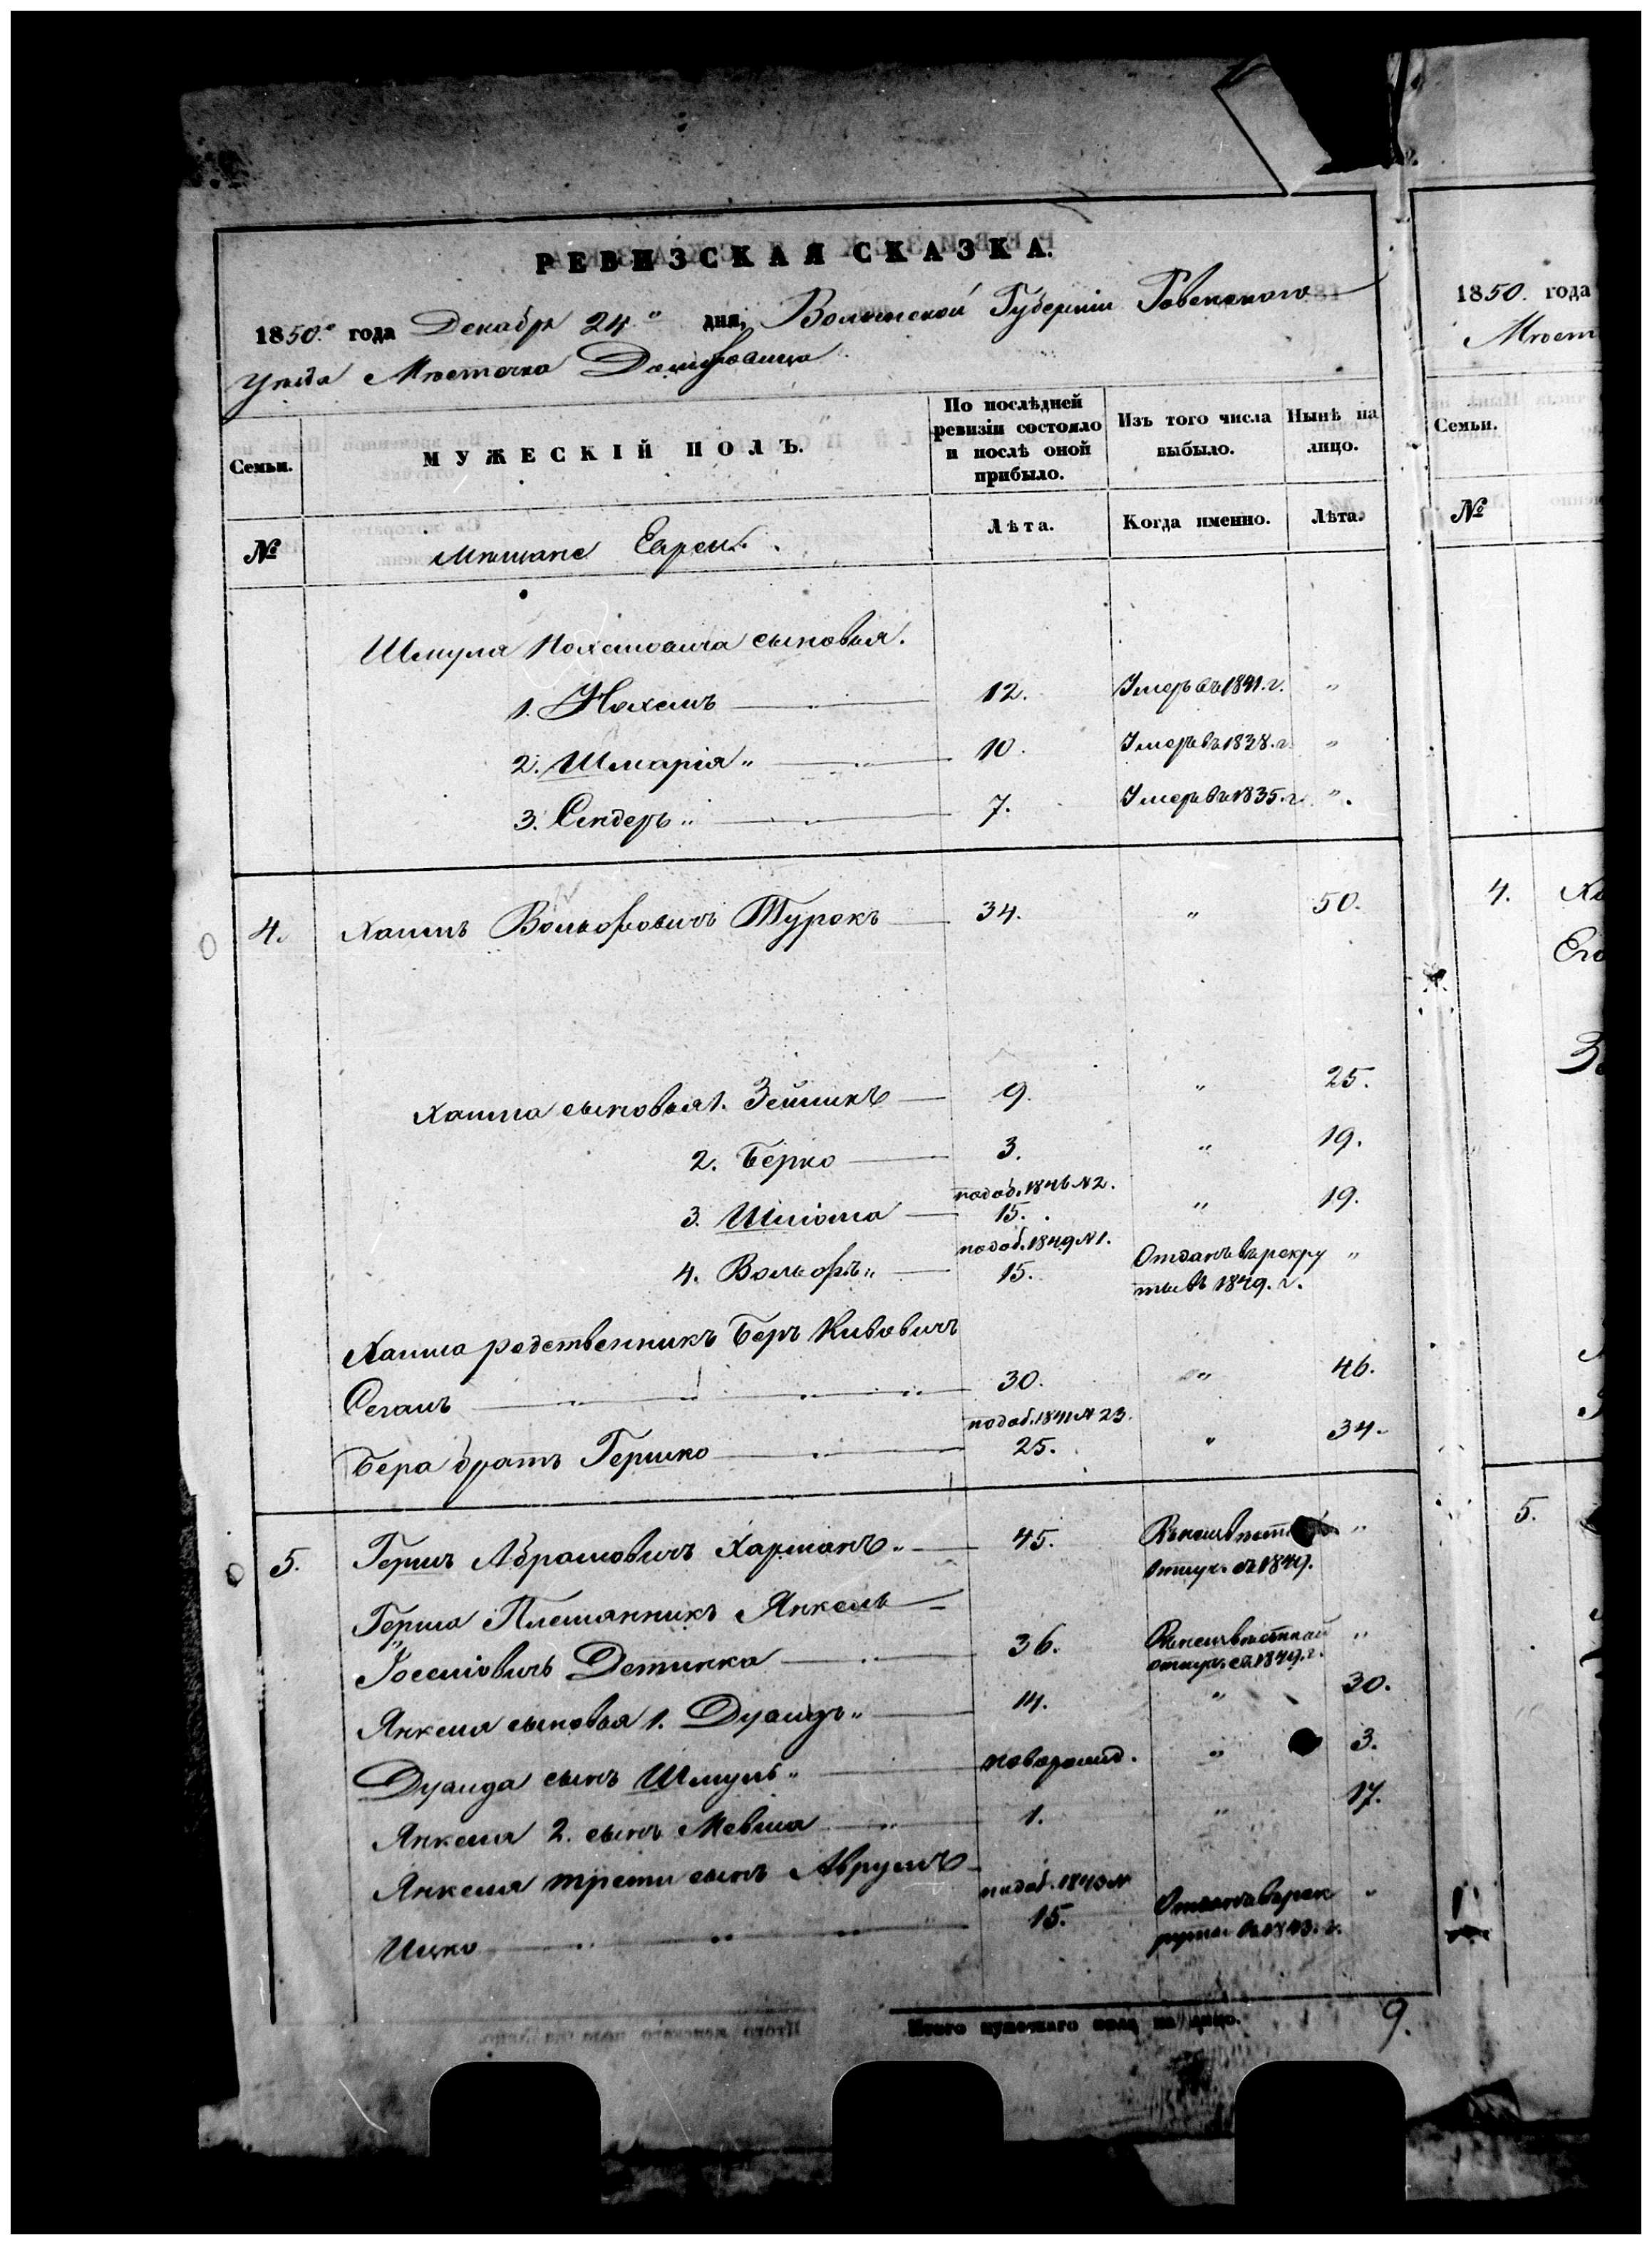 РЕВИЗСКАЯ СКАЗКА.
1850. года Декабря 24 дня, Волынской Губерніи Ровенского
Уѣзда Мѣстечка Домбровица
Семьи.
МУЖЕСКІЙ ПОЛЪ.
По послѣдней ревизіи состояло и послѣ оной прибыло.
Изъ того числа выбыло.
Нынѣ на лицо.
№
Мѣщане Евреи.
Лѣта.
Когда именно.
Лѣта.
Шмуля Нохемовича сыновья.
1. Нохемъ 12. Умеръ въ 1841. г. "
2. Шмарія " 10. Умеръ въ 1838. г. "
3. Сендеръ " 7. Умеръ въ 1835. г. "
4. Хаимъ Вольфовичъ Турокъ 34. " 50.
Хаима сыновья 1. Зейликъ 9. " 25.
2. Берко 3. " 19.
по доб. 1846 № 2.
3. Шліома 15. " 19.
по доб. 1849 № 1.
4. Вольфъ " 15. Отданъ въ рекру "
ты въ 1849. г.
Хаима родственникъ Беръ Кивовичъ
Сегалъ 30. " 46.
по доб. 1841 № 23.
Бера братъ Гершко 25. " 34.
5. Гершъ Абрамовичъ Харманъ " 45. "
отлуч. съ 1849.
Герша Племянникъ Янкель
Іоселіовичъ Детинка 36. "
отлуч. съ 1849. г.
Янкеля сыновья 1. Дувидъ " 14. " 30.
Дувида сынъ Шмуль " новорожд. " 3.
Янкеля 2. сынъ Мевша 1. " 17.
Янкеля трети сынъ Аврумъ
по доб. 1843 №
Ицко 15. Отданъ въ рек "
руты въ 1843. г.
Итого мужескаго пола на лицо. 9.
1850. года
Мѣст
Семьи.
№
4.
Его
5.